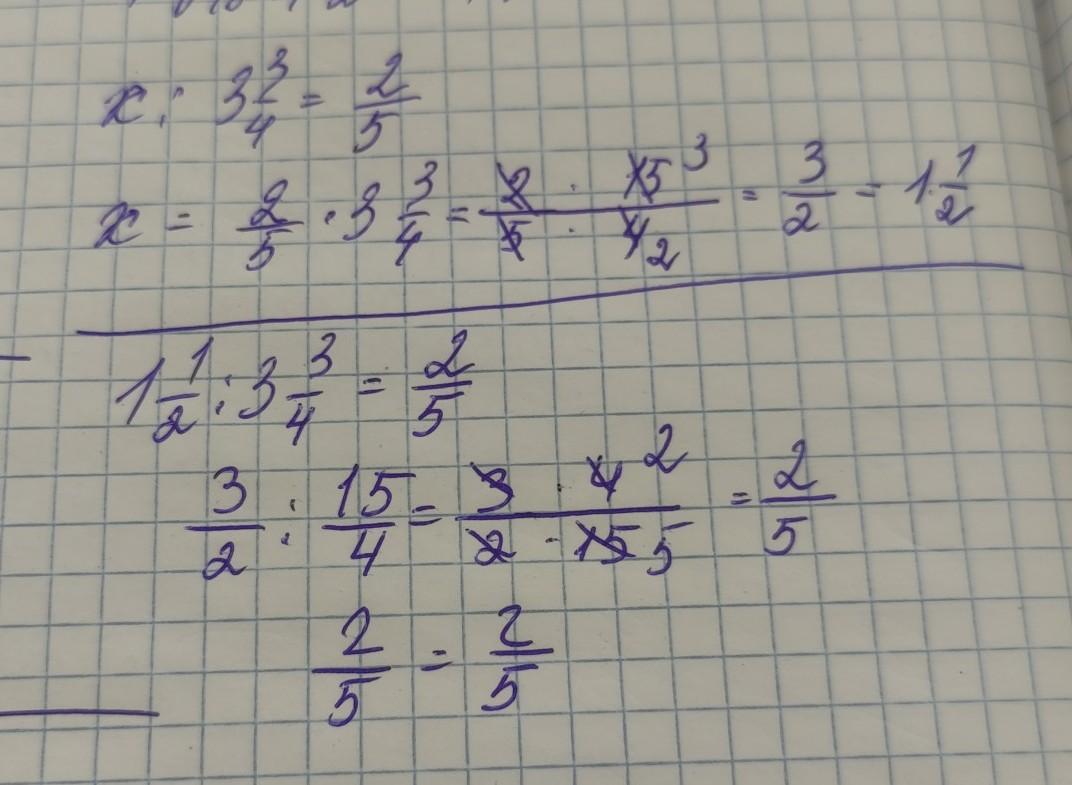 x : 3 3/4 = 2/5
x = 2/5 · 3 3/4 = 2/5 · 15 3/4 2 = 3/2 = 1 1/2
1 1/2 : 3 3/4 = 2/5
3/2 : 15/4 = 3 · 4 2/2 · 15 5 = 2/5
2/5 = 2/5